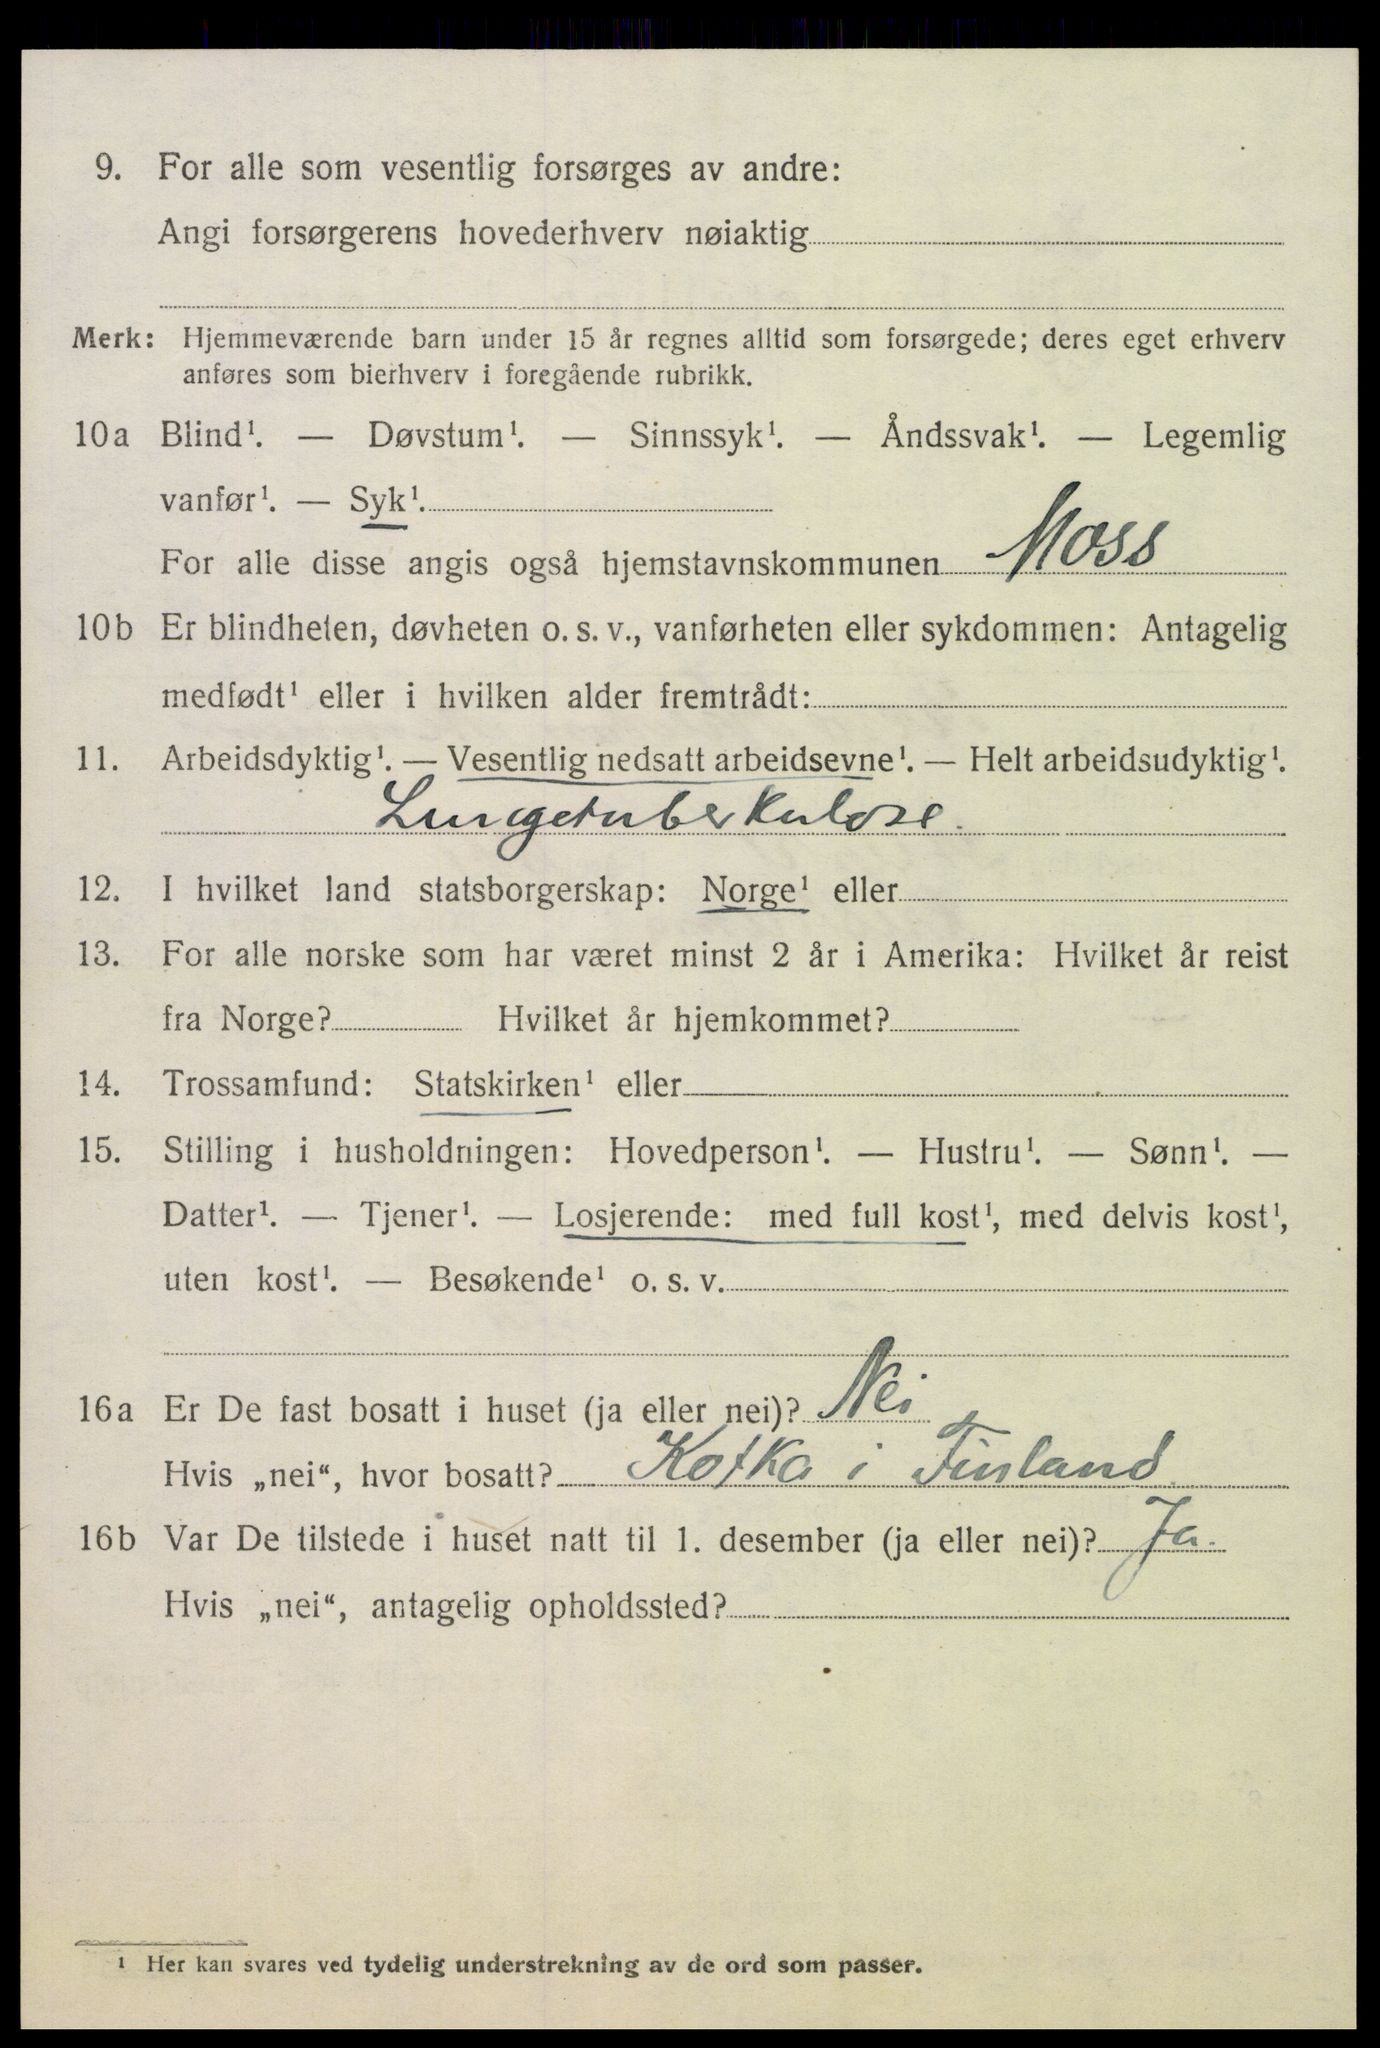 9. For alle som vesentlig forsørges av andre:
Angi forsørgerens hovederhverv nøiaktig
Merk: Hjemmeværende barn under 15 år regnes alltid som forsørgede; deres eget erhverv
anføres som bierhverv i foregående rubrikk.
10a Blind¹. — Døvstum¹. — Sinnssyk¹. — Åndssvak¹. — Legemlig
vanfør¹. — Syk¹.
For alle disse angis også hjemstavnskommunen Moss
10b Er blindheten, døvheten o. s. v., vanførheten eller sykdommen: Antagelig
medfødt¹ eller i hvilken alder fremtrådt:
11. Arbeidsdyktig¹. — Vesentlig nedsatt arbeidsevne¹. — Helt arbeidsudyktig¹.
Lungetuberkulose.
12. I hvilket land statsborgerskap: Norge¹ eller
13. For alle norske som har været minst 2 år i Amerika: Hvilket år reist
fra Norge? Hvilket år hjemkommet?
14. Trossamfund: Statskirken¹ eller
15. Stilling i husholdningen: Hovedperson¹. — Hustru¹. — Sønn¹. —
Datter¹. — Tjener¹. — Losjerende: med full kost¹, med delvis kost¹,
uten kost¹. — Besøkende¹ o. s. v.
16a Er De fast bosatt i huset (ja eller nei)? Nei
Hvis „nei“, hvor bosatt? Kotka i Finland
16b Var De tilstede i huset natt til 1. desember (ja eller nei)? Ja.
Hvis „nei“, antagelig opholdssted?
¹ Her kan svares ved tydelig understrekning av de ord som passer.